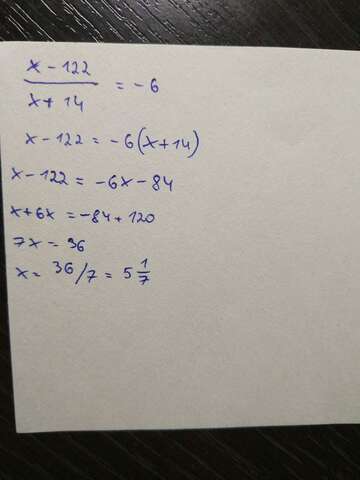 x - 122 / x + 14 = -6
x - 122 = -6(x+14)
x - 122 = -6x - 84
x + 6x = -84 + 120
7x = 36
x = 36/7 = 5 1/7